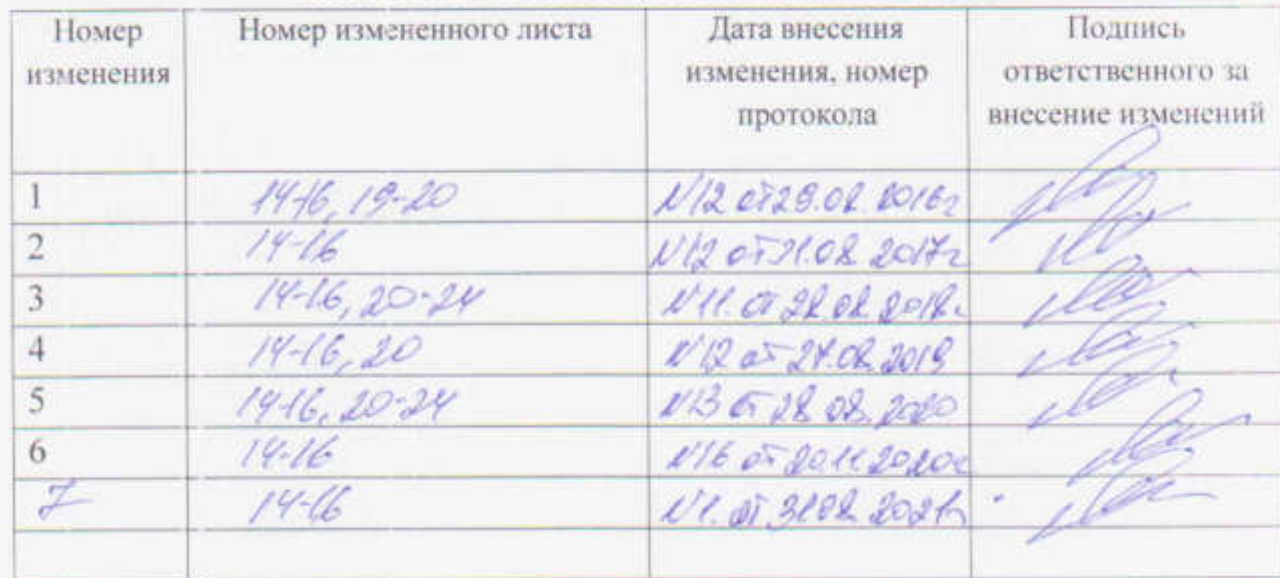 Номер Номер измененного листа Дата внесения Подпись
изменения изменения, номер ответственного за
протокола внесение изменений
1 14-16, 19-20 №12 от 29.08.2016г
2 14-16 №12 от 31.08.2017г
3 14-16, 20-24 №11. от 28.08.2018г
4 14-16, 20 №12 от 27.08.2019
5 14-16, 20-24 №13 от 28.08.2020
6 14-16 №16 от 20.11.2020г
7 14-16 №1. от 31.08.2021г